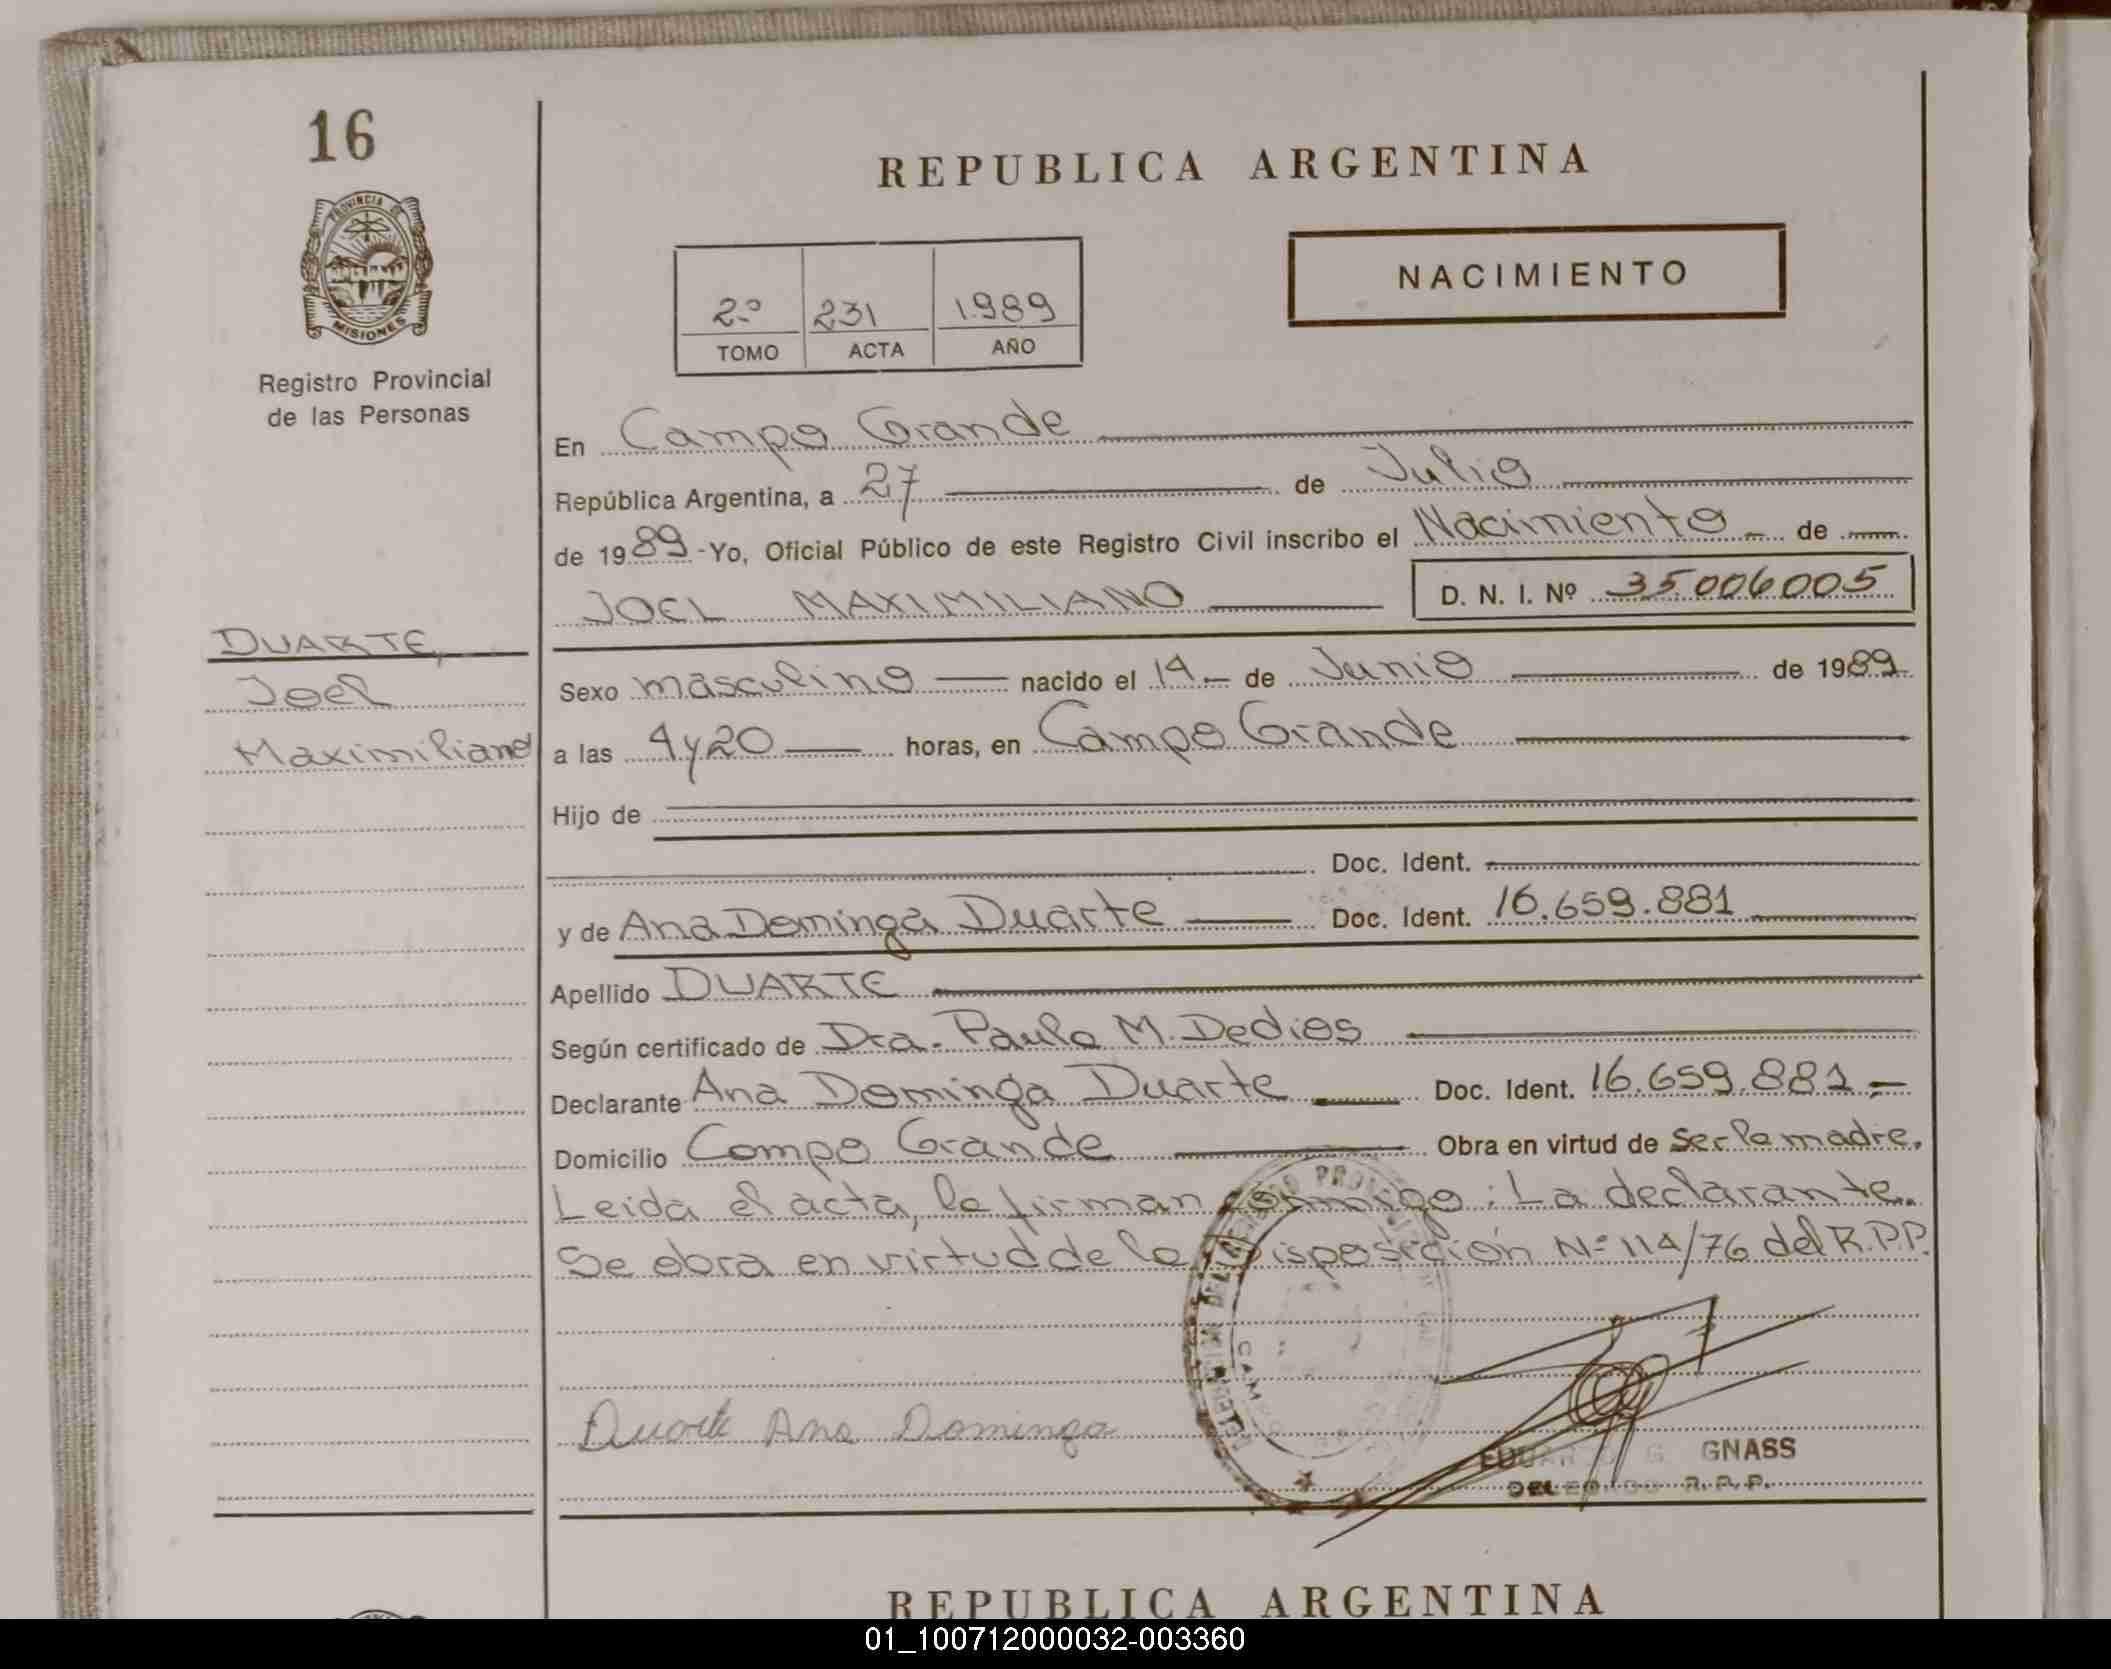 16
REPUBLICA ARGENTINA
PROVINCIA DE
MISIONES
NACIMIENTO
2º 231 1.989
TOMO ACTA AÑO
Registro Provincial
de las Personas
En Campo Grande
República Argentina, a 27 de Julio
de 1989 - Yo, Oficial Público de este Registro Civil inscribo el Nacimiento de
JOEL MAXIMILIANO D. N. I. Nº 35.006005
DUARTE,
Joel
Maximiliano
Sexo masculino nacido el 14 de Junio de 1989
a las 4y20 horas, en Campo Grande
Hijo de
Doc. Ident.
y de Ana Dominga Duarte Doc. Ident. 16.659.881
Apellido DUARTE
Según certificado de Dra. Paula M. Dedios
Declarante Ana Dominga Duarte Doc. Ident. 16.659.881.-
Domicilio Campo Grande Obra en virtud de Ser la madre.
Leida el acta, la firman conmigo: La declarante.
Se obra en virtud de la Disposición Nº 114/76 del R.P.P.
Duarte Ana Dominga
EDUARDO G. GNASS
DELEGADO R.P.P.
REPUBLICA ARGENTINA
01_100712000032-003360